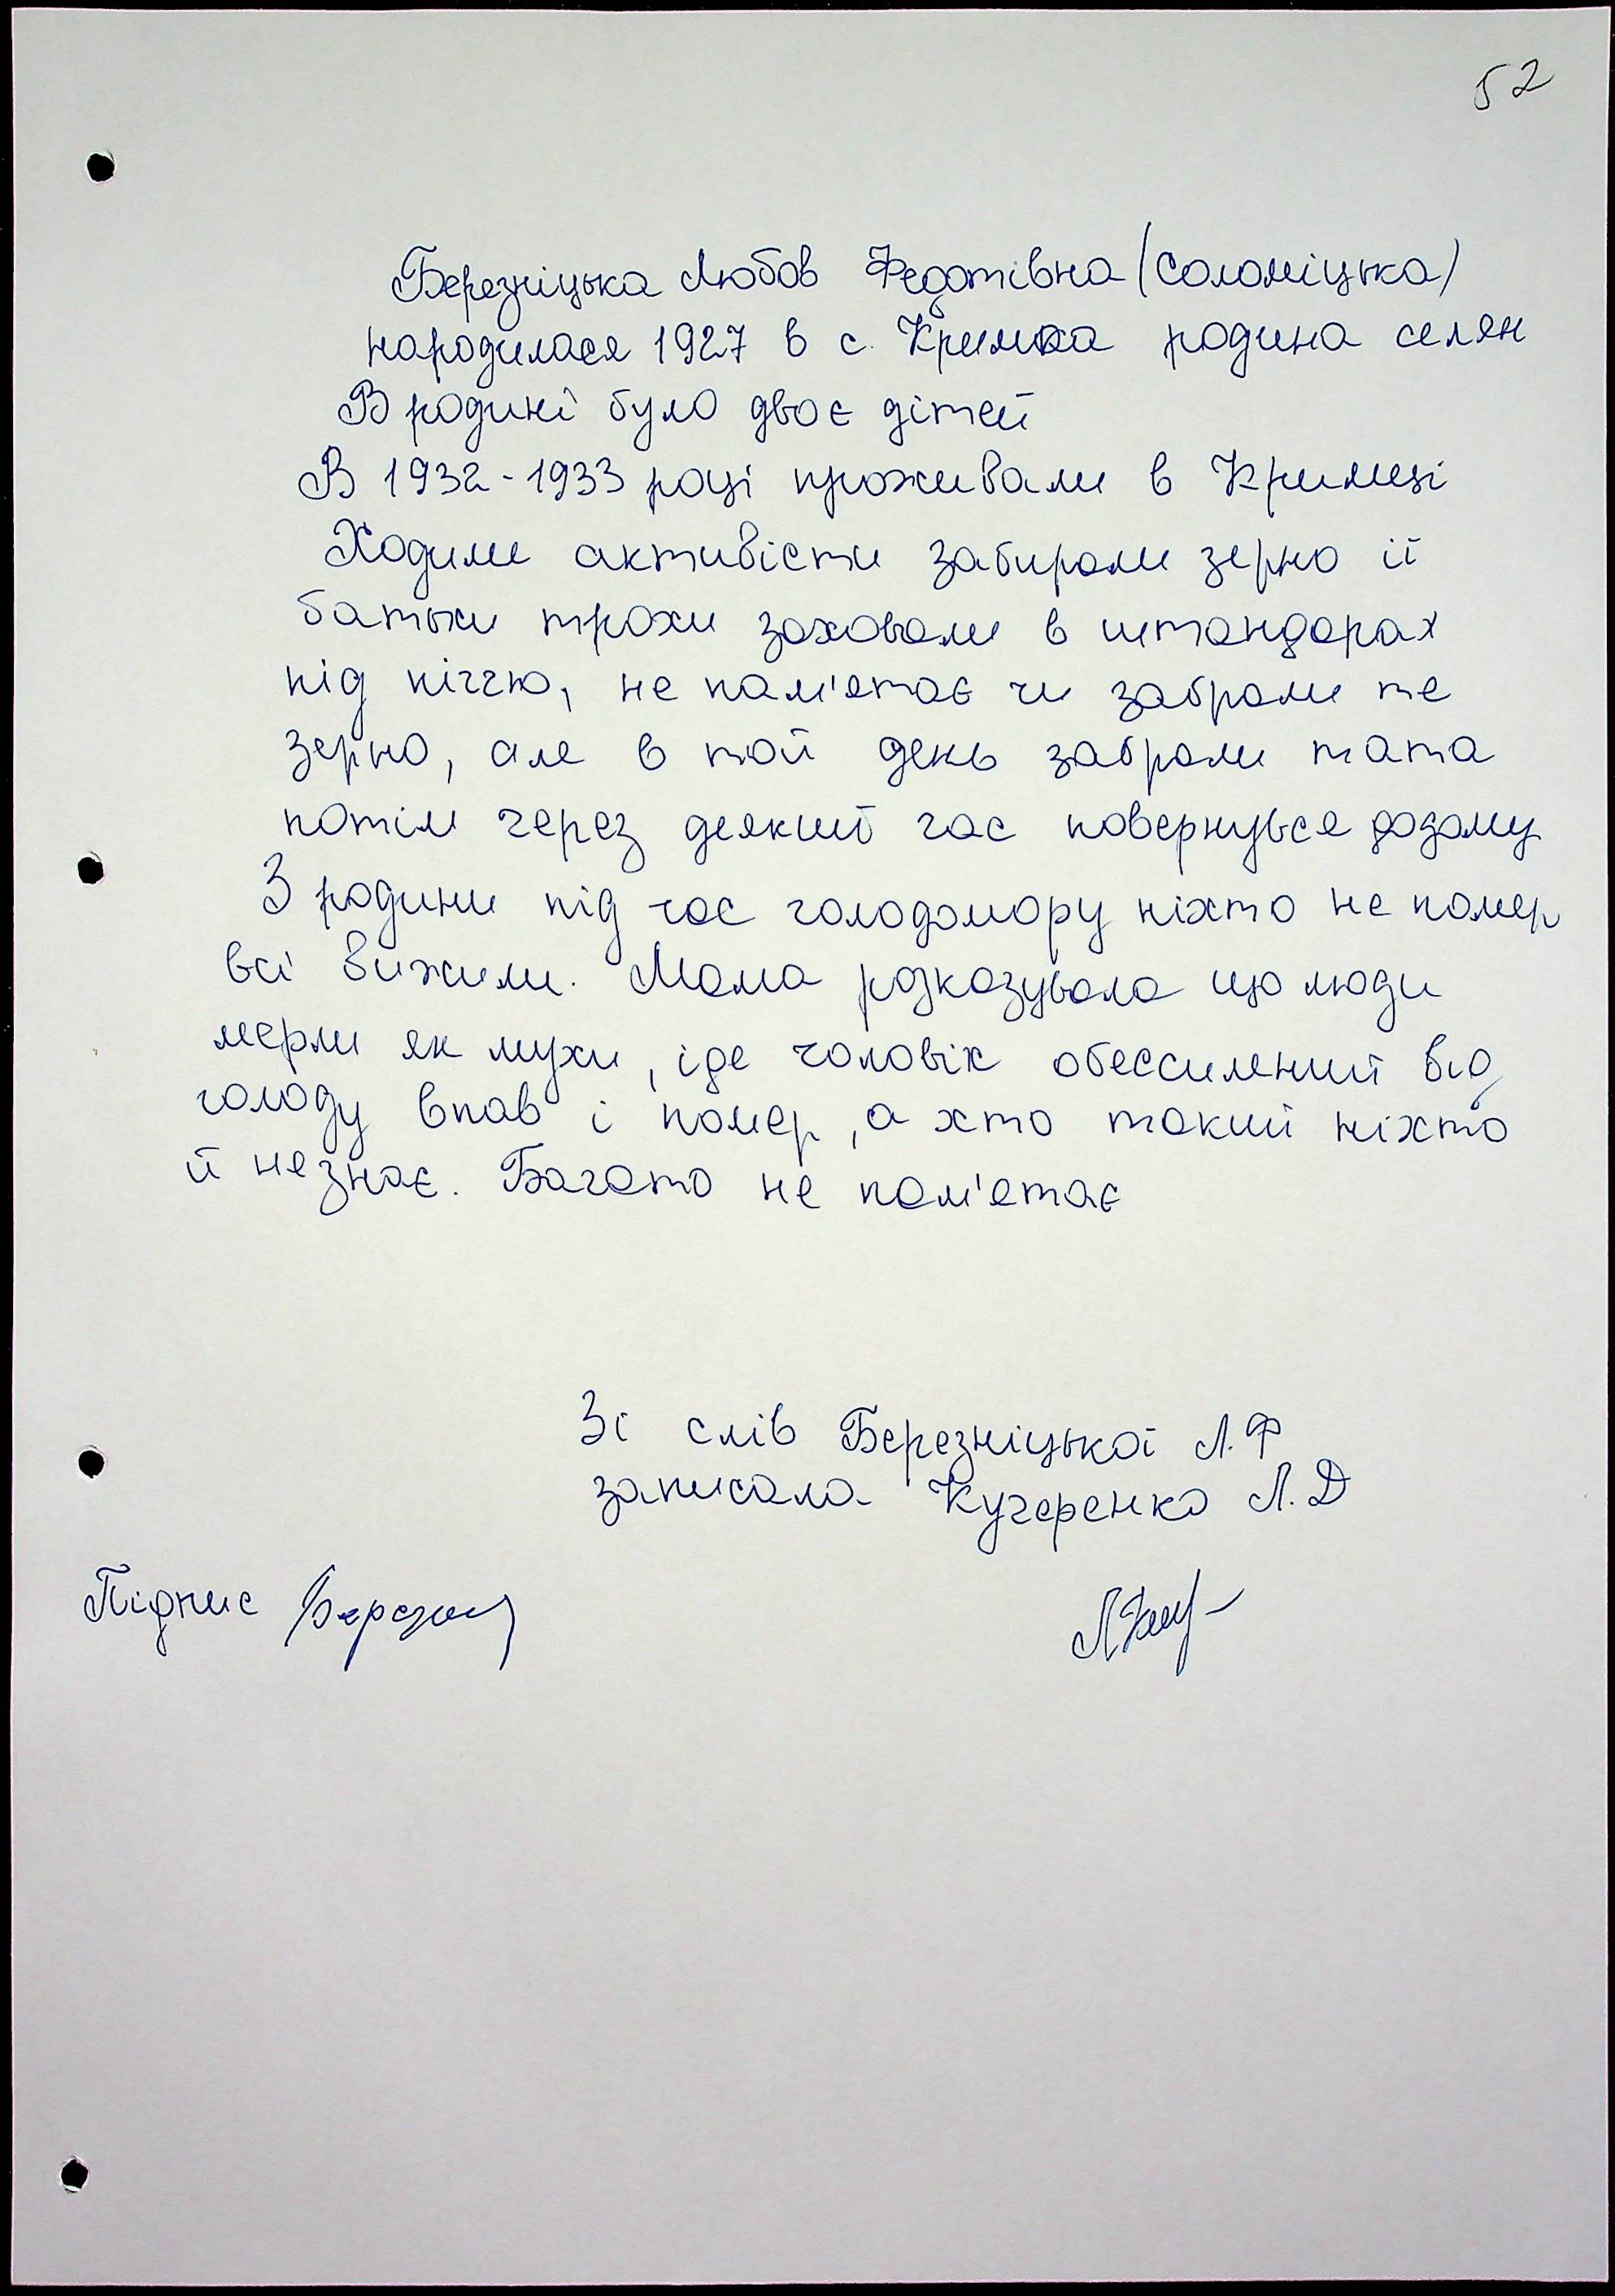 52
Березніцька Любов Федотівна (Соломіцька)
народилася 1927 в с. Кримка родина селян
В родині було двоє дітей
В 1932-1933 році проживали в Кримці
Ходили активісти забирали зерно її
батьки трохи заховали в штандарах
під піччю, не пам'ятає чи забрали те
зерно, але в той день забрали тата
потім через деякий час повернувся додому
З родини під час голодомору ніхто не помер
всі вижили. Мама розказувала що люди
мерли як мухи, іде чоловік обессилений від
голоду впав і помер, а хто такий ніхто
й не знає. Багато не пам'ятає
Зі слів Березніцької Л.Ф
записала Кучеренко Л.Д
Підпис